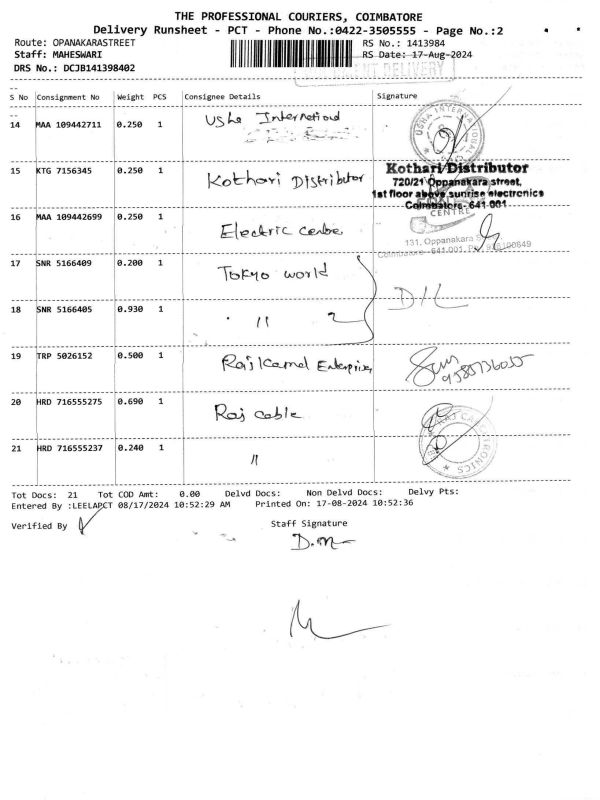 THE PROFESSIONAL COURIERS, COIMBATORE
Delivery Runsheet - PCT - Phone No.:0422-3505555 - Page No.:2
Route: OPANAKARASTREET RS No.: 1413984
Staff: MAHESWARI RS Date: 17-Aug-2024
DRS No.: DCJB141398402
DELIVERY
S No Consignment No Weight PCS Consignee Details Signature
14 MAA 109442711 0.250 1 Usha International
USHA INTERNATIONAL
15 KTG 7156345 0.250 1 Kothari Distributor
Kothari Distributor
720/21 Oppanakara street,
1st floor above sunrise electronics
Coimbatore- 641 001
16 MAA 109442699 0.250 1 Electric centre
CENTRE
131, Oppanakara
Coimbatore - 641 001,
17 SNR 5166409 0.200 1 Tokyo world
D/L
18 SNR 5166405 0.930 1 " 2
19 TRP 5026152 0.500 1 Rajkamal Enterprises
20 HRD 716555275 0.690 1 Raj cable
21 HRD 716555237 0.240 1 "
Tot Docs: 21 Tot COD Amt: 0.00 Delvd Docs: Non Delvd Docs: Delvy Pts:
Entered By :LEELAPCT 08/17/2024 10:52:29 AM Printed On: 17-08-2024 10:52:36
Verified By Staff Signature